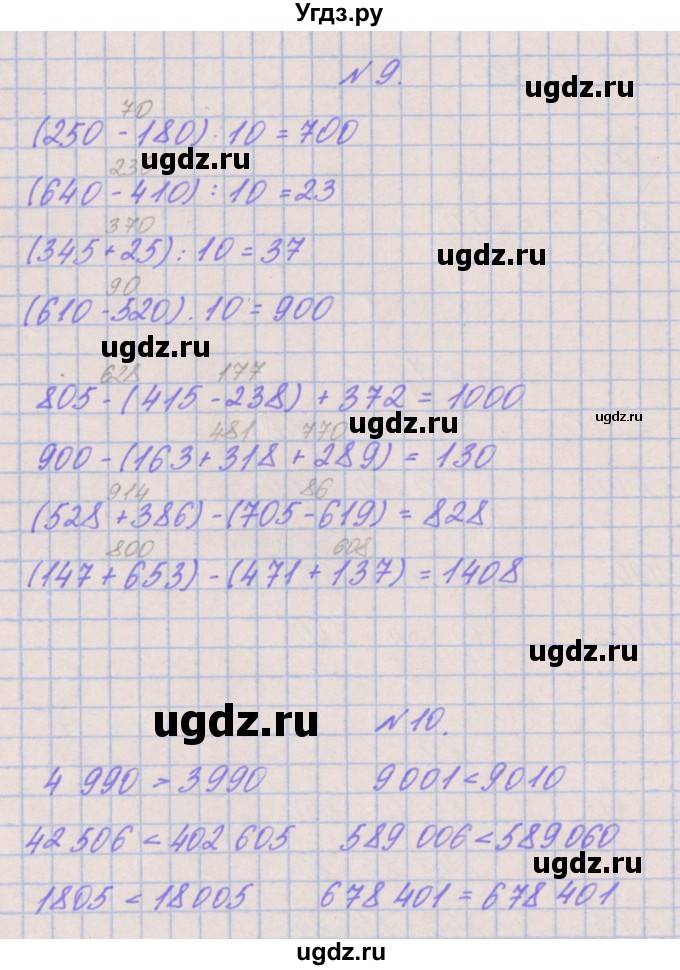 Угдз.ру
№ 9.
ugdz.ru
70
(250 - 180) · 10 = 700
ugdz.ru
230
(640 - 410) : 10 = 23
370
(345 + 25) : 10 = 37
ugdz.ru
90
(610 - 520) · 10 = 900
ugdz.ru
628 177
805 - (415 - 238) + 372 = 1000
ugdz.ru
ugdz.ru
481 770
900 - (163 + 318 + 289) = 130
914 86
(528 + 386) - (705 - 619) = 828
800 608
(147 + 653) - (471 + 137) = 1408
ugdz.ru
ugdz.ru
№ 10.
4 990 > 3990 9001 < 9010
42 506 < 402 605 589 006 < 589 060
ugdz.ru
1805 < 18005 678 401 = 678 401
ugdz.ru